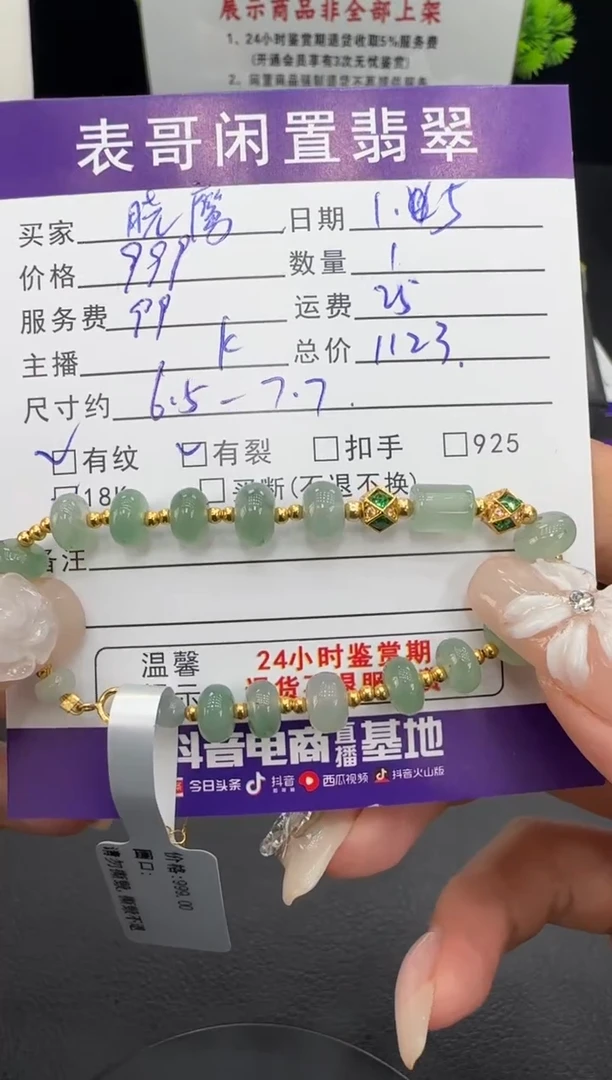 展示商品非全部上架
1、24小时鉴赏期退货收取5%服务费
(开通会员享有3次无忧鉴赏)
表哥闲置翡翠
买家 日期 1.
价格 999 数量 1
服务费 99 运费 25
主播 K 总价 1123.
尺寸约 6.5-7.7.
☑有纹 ☑有裂 □扣手 □925
□18K □买断(不退不换)
备注
温馨 24小时鉴赏期
抖音电商直播基地
今日头条 抖音 西瓜视频 抖音火山版
价格:999.00
圈口: